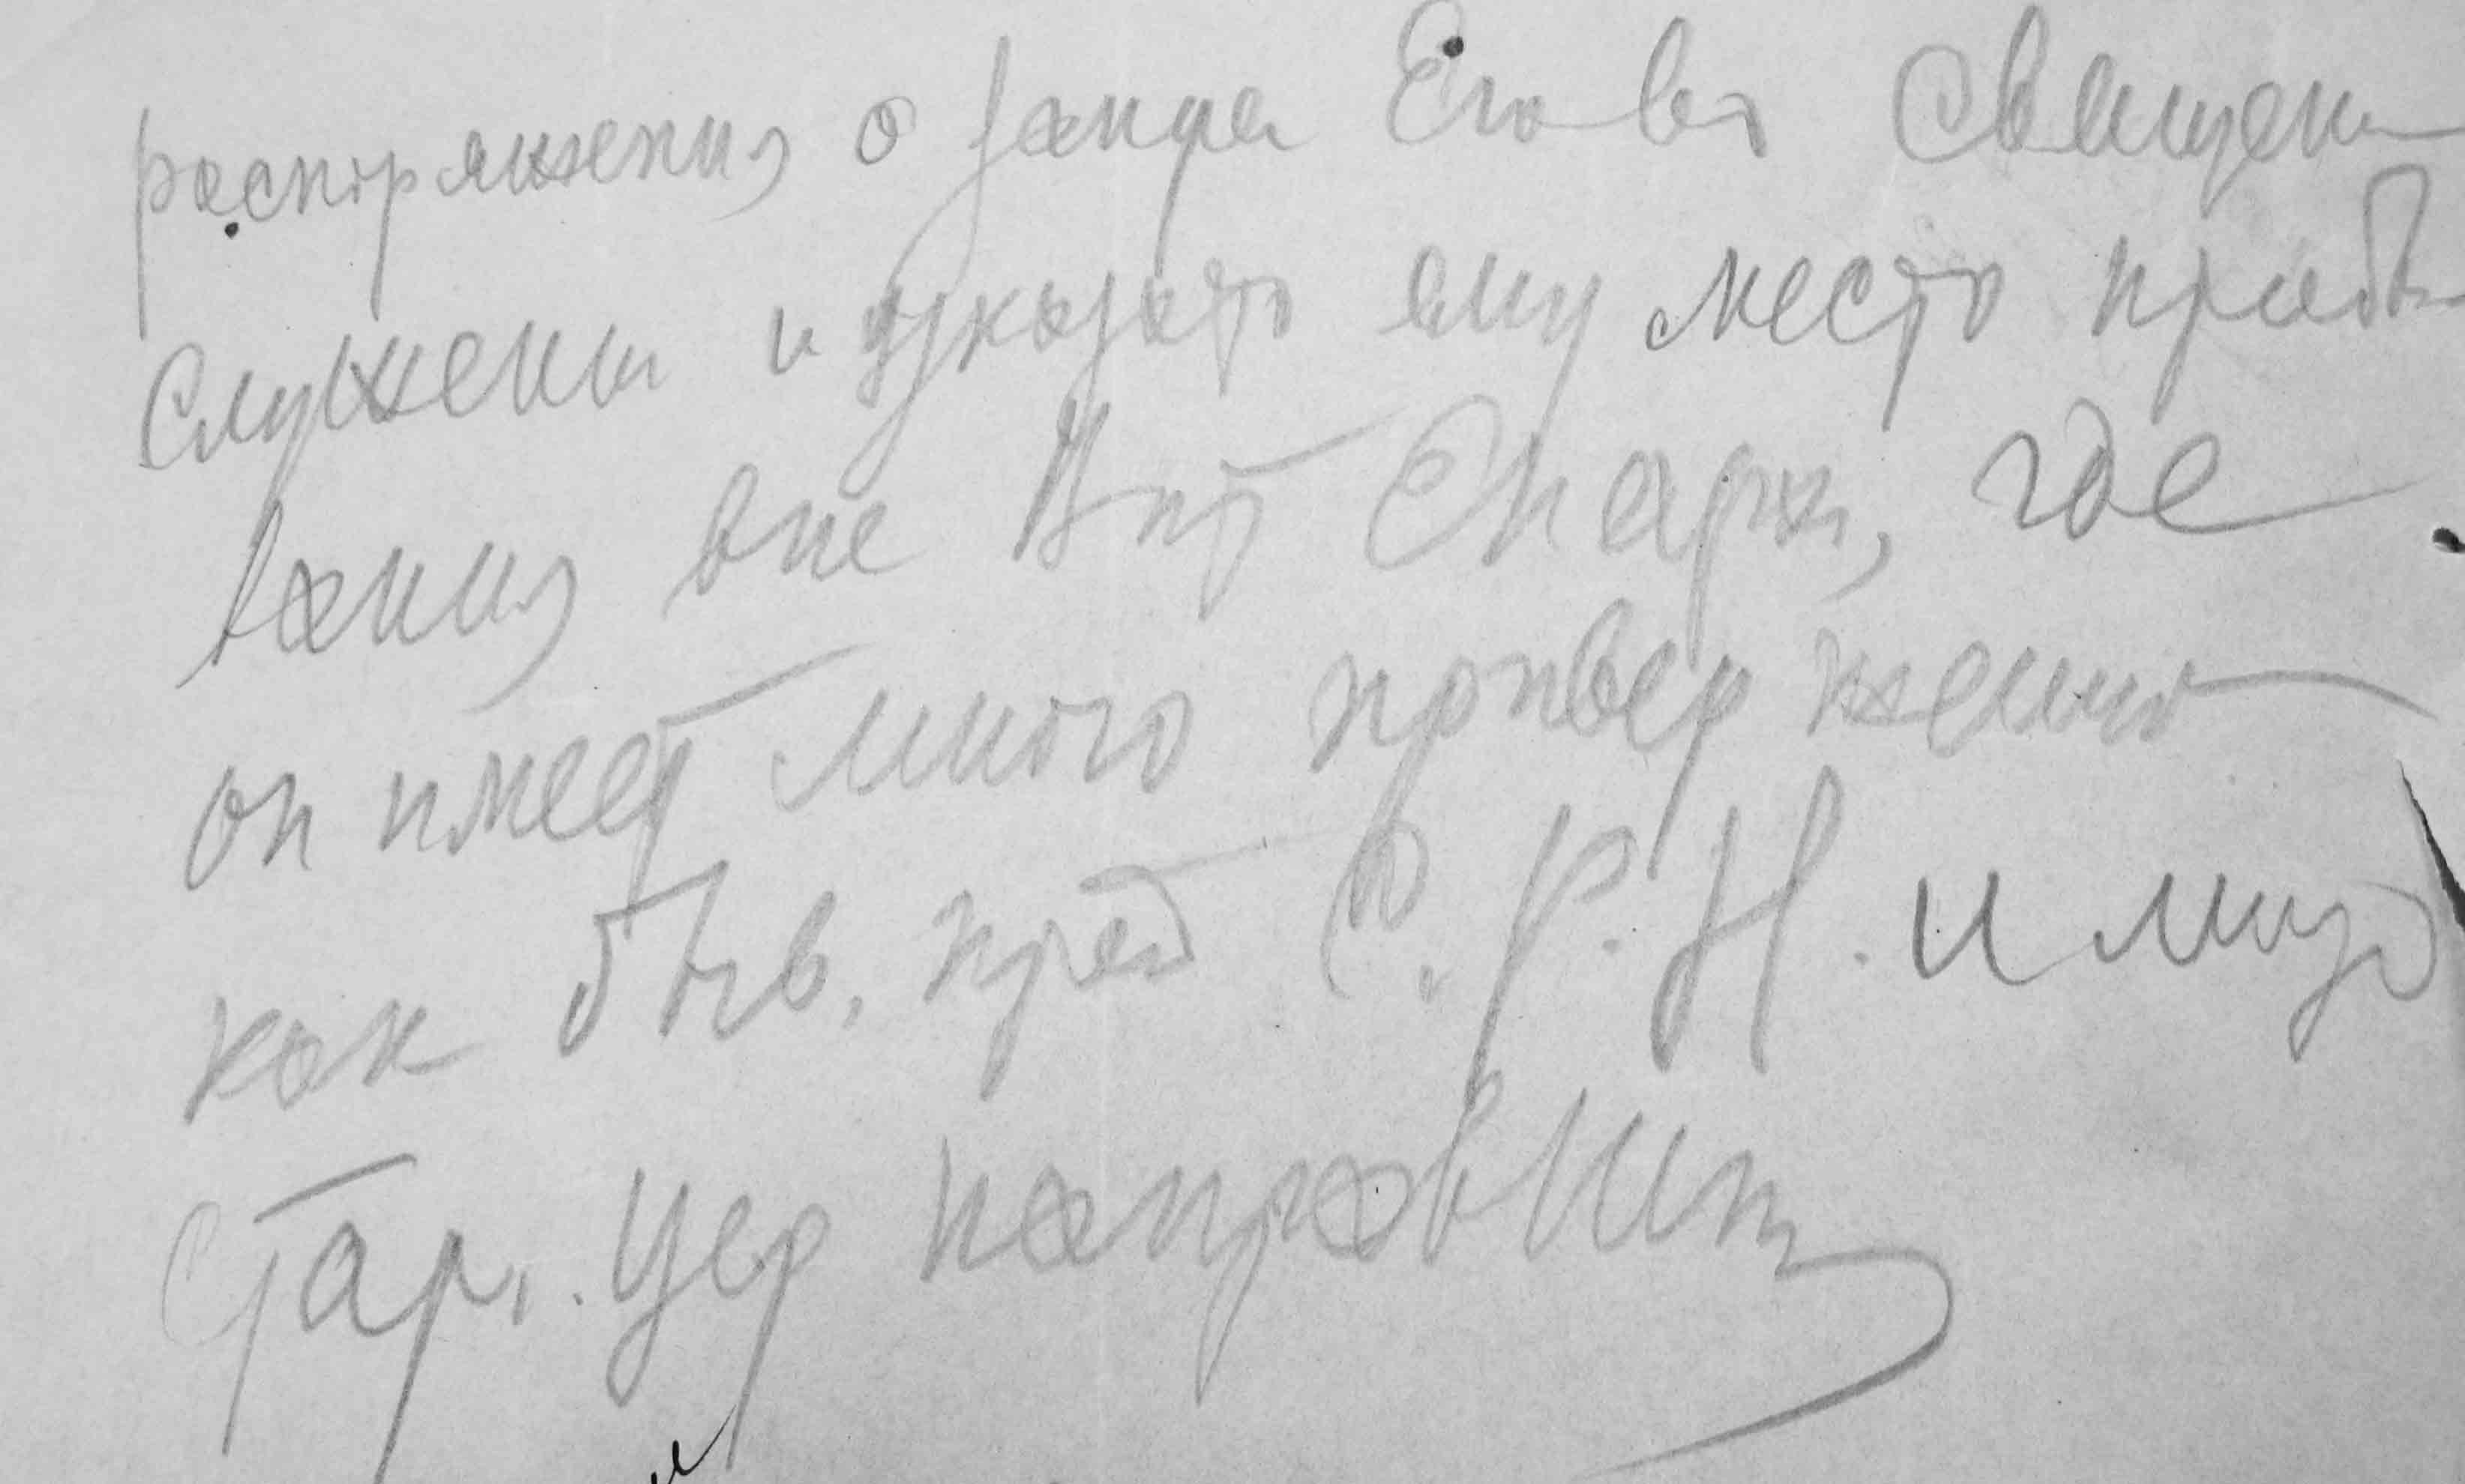 распоряжения о запре Его вся священ
служения и указать ему место пребы
вания вне Вят Епархи, где
он имеет много приверженцев
как быв. пред С.Р.Н. и
стар. цер направлен